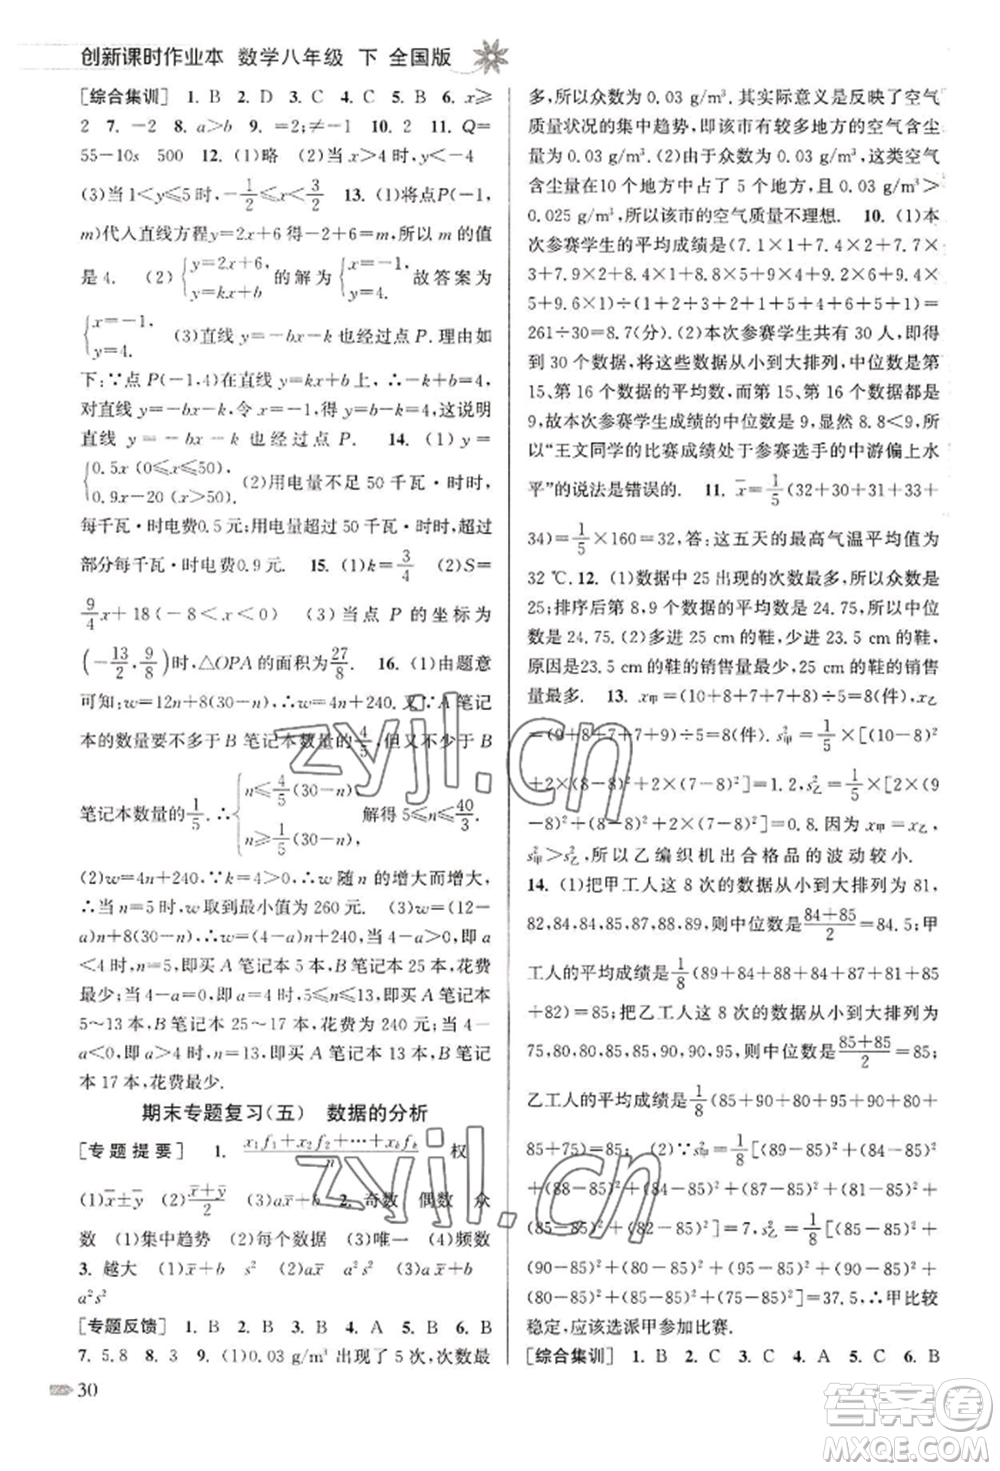 创新课时作业本 数学八年级 下 全国版
[综合集训] 1. B 2. D 3. C 4. C 5. B 6. x≥
2 7. -2 8. a>b 9. =2;≠-1 10. 2 11. Q=
55-10s 500 12. (1)略 (2)当 x<-4
(3)当 1<y≤5 时,-1/2≤x<3/2 13. (1)将点P(-1,
m)代人直线方程y=2x+6得-2+6=m,所以m的值
是4. (2){y=2x+6, y=kx+b 的解为{x=-1, y=4. 故答案为
{x=-1, y=4. (3)直线 y=-bx-k也经过点 P.理由如
下:∵点P(-1,4)在直线 y=kx+b 上,∴-k+b=4,
对直线 y=-bx-k,令 x=-1,得 y=b-k=4,这说明
直线 y=-bx-k 也经过点 P. 14. (1) y=
{0.5x(0≤x≤50), 0.9x-20(x>50). (2)用电量不足 50 千瓦·时时,
每千瓦·时电费0.5 元;用电量超过 50 千瓦·时时,超过
部分每千瓦·时电费0.9 元. 15. (1)k=3/4 (2)S=
9/4x+18(-8<x<0) (3)当点 P 的坐标为
(-13/2,9/8)时,△OPA的面积为27/8 16. (1)由题意
可知:w=12n+8(30-n),∴w=4n+240. 又∵A 笔记
本的数量要不多于 B 笔记本数量的4/5,但又不少于B
笔记本数量的1/5.∴{n≤4/5(30-n) n≥1/5(30-n) 解得 5≤n≤40/3
(2)w=4n+240,∵k>0,∴w 随 n 的增大而增大,
∴当 n=5 时,w取到最小值为 260 元. (3)w=(12-
a)n+8(30-n),∴w=(4-a)n+240,当 4-a>0,即a
<4 时,n=5,即买 A 笔记本 5 本,B 笔记本 25 本,花费
最少;当 4-a=0,即a=4 时,5≤n≤13,即买 A 笔记本
5~13 本,B 笔记本 25~17 本,花费为 240 元;当4-
a<0,即a>4 时,n=13,即买 A 笔记本 13 本,B笔记
本 17 本,花费最少.
期末专题复习(五) 数据的分析
[专题提要] 1. x₁f₁+x₂f₂+…+xₖfₖ/n 权
(1)x̄±ȳ (2)x̄+ȳ/2 (3)ax̄+b 2. 奇数 偶数 众
数 (1)集中趋势 (2)每个数据 (3)唯一 (4)频数
3. 越大 (1)x̄+b s² (2)ax̄ a²s² (3)ax̄+b
a²s²
[专题反馈] 1. B 2. B 3. A 4. B 5. B 6. B
7. 5,8 8. 3 9. (1)0.03 g/m³ 出现了 5 次,次数最
多,所以众数为 0.03 g/m³.其实际意义是反映了空气
质量状况的集中趋势,即该市有较多地方的空气含尘
量为0.03 g/m³. (2)由于众数为 0.03 g/m³,这类空气
含尘量在10 个地方中占了 5 个地方,且 0.03 g/m³>
0.025 g/m³,所以该市的空气质量不理想. 10. (1)本
次参赛学生的平均成绩=(7.1×2+7.3×1+7.7×
3+7.9×2+8.1×3+8.4×4+8.6×1+9×5+9.2×
4+9.4×3+9.7×5+9.6×1)÷(2+1+
2+3+4+1+5+4+3+5+1)=
261÷30=8.7(分). (2)本次参赛学生共有 30 人,即得
到 30 个数据,将这些数据从小到大排列,中位数是第
15、第 16 个数据的平均数,而第 15、第 16 个数据都是
9,故本次参赛学生成绩的中位数为 9,显然 8.8<9,所
以“王文同学的比赛成绩处于参赛选手的中游偏上水
平”的说法是错误的. 11. x̄=1/5(32+30+31+33+
34)=1/5×160=32,答:这五天的最高气温平均值为
32 ℃.12. (1)数据中 25 出现的次数最多,所以众数为
25;排序后第 8,9 个数据的平均数是 24.75,所以中位
数是 24.75. (2)多进 25 cm 的鞋,少进 23.5 cm 的鞋,
原因是23.5 cm 的鞋的销售量最少,25 cm 的鞋的销售
量最多. 13. x甲=(10+8+7+7+8)÷5=8(件),x乙
=(9+8+7+7+9)÷5=8(件). s²甲=1/5×[(10-8)²
+2×(8-8)²+2×(7-8)²]=1.2,s²乙=1/5×[2×(9
-8)²+(8-8)²+2×(7-8)²]=0.8. 因为 x甲=x乙,
s²甲>s²乙,所以乙编织机出合格品的波动较小.
14. (1)把甲工人这 8 次的数据从小到大排列为 81,
82,84,84,85,87,88,89,则中位数是84+85/2=84.5;甲
工人的平均成绩是1/8(89+84+88+84+87+81+85+
82)=85,把乙工人这 8 次的数据从小到大排列为
75,80,80,85,85,90,90,95,则中位数是85+85/2=85;
乙工人的平均成绩是1/8(85+90+80+95+90+80+
85+75)=85; (2)∵s²甲=1/8[(89-85)²+(84-85)²
+(88-85)²+(84-85)²+(87-85)²+(81-85)²+
(85-85)²+(82-85)²]=7,s²乙=1/8×[(85-85)²
+(90-85)²+(80-85)²+(95-85)²+(90-85)²+
(80-85)²+(85-85)²+(75-85)²]=37.5,∴甲比较
稳定,应该选派甲参加比赛.
[综合集训] 1. B 2. A 3. A 4. C 5. A 6. B
30
zyjl.cn
zyjl.cn
答案卷
MXQE.COM